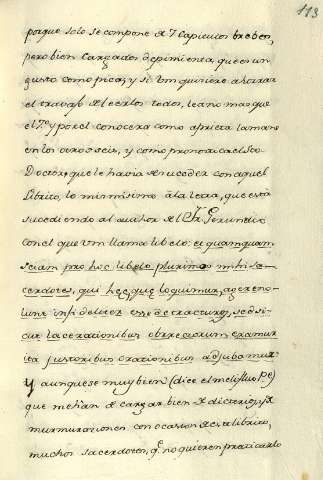 113
porque solo se compone de 7 Capitulos breben,
pero bien cargados de pimienta, que es un
gusto como pica, y si Vm quiniere ahorrar
el travajo de leerlos todos, lea no mas que
el 7º y por el conocerá como aprieta la mano
en los otros seis, y como pronosticaba el Sto
Doctor, que le havia de suceder con aquel
Librito, lo mismisimo à la letra, que está
sucediendo al author de el Fr. Gerundio
con el que Vm llama libelo: et quamquam
sciam pro hoc libello plurimos mihi
qui hęc, quę loquimur, agere no
esse
orationibus adjubamur
Y aunque se muy bien (dice el melifluo P.e)
que me han de cargar bien de dicterios, y de
murmuraciones con ocasion de este librito,
muchos sacerdotes, q.e no quieren practicarlo